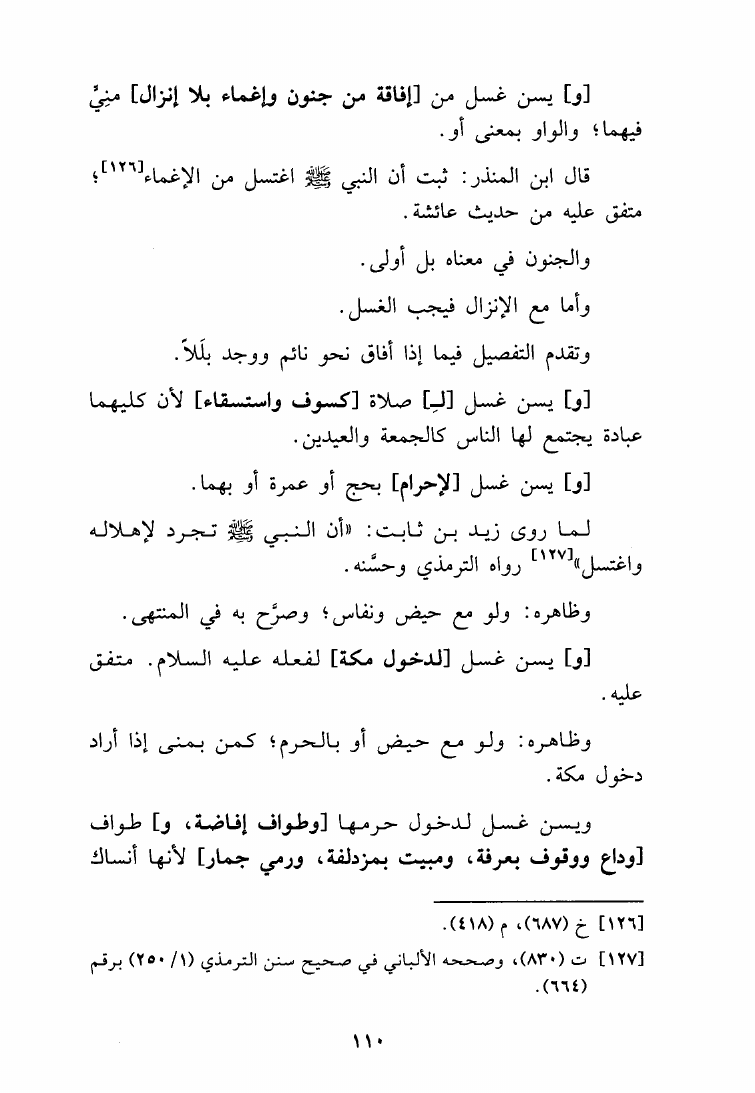 [و] يسن غسل من [إفاقة من جنون وإغماء بلا إنزال] منِيٍّ
فيهما؛ والواو بمعنى أو.
قال ابن المنذر: ثبت أن النبي ﷺ اغتسل من الإغماء[١٢٦]؛
متفق عليه من حديث عائشة.
والجنون في معناه بل أولى.
وأما مع الإنزال فيجب الغسل.
وتقدم التفصيل فيما إذا أفاق نحو نائم ووجد بلَلاً.
[و] يسن غسل [لـِ] صلاة [كسوف واستسقاء] لأن كليهما
عبادة يجتمع لها الناس كالجمعة والعيدين.
[و] يسن غسل [لإحرام] بحج أو عمرة أو بهما.
لما روى زيد بن ثابت: «أن النبي ﷺ تجرد لإهلاله
واغتسل»[١٢٧] رواه الترمذي وحسَّنه.
وظاهره: ولو مع حيض ونفاس؛ وصرَّح به في المنتهى.
[و] يسن غسل [لدخول مكة] لفعله عليه السلام. متفق
عليه.
وظاهره: ولو مع حيض أو بالحرم؛ كمن بمنى إذا أراد
دخول مكة.
ويسن غسل لدخول حرمها [وطواف إفاضة، و] طواف
[وداع ووقوف بعرفة، ومبيت بمزدلفة، ورمي جمار] لأنها أنساك
[١٢٦] خ (٦٨٧)، م (٤١٨).
[١٢٧] ت (٨٣٠)، وصححه الألباني في صحيح سنن الترمذي (١/ ٢٥٠) برقم
(٦٦٤).
١١٠